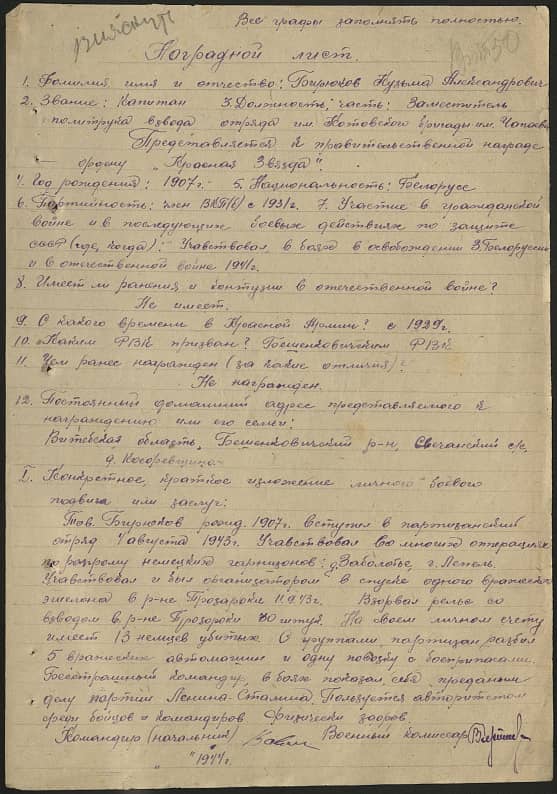 Все графы заполнять полностью.
Наградной лист.
1. Фамилия имя и отчество: Бирюков Кузьма Александрович
2. Звание: Капитан 3. Должность, часть: Заместитель
политрука взвода отряда им. Котовского бригады им. Чапаева
Представляется к правительственной награде
— ордену „Красная Звезда".
4. Год рождения: 1907г. 5. Национальность: Белорусс
6. Партийность: член ВКП(б) с 1931г. 7. Участие в гражданской
войне и в последующих боевых действиях по защите
СССР (где, когда): Учавствовал в боях в освобождении З. Белоруссии
и в отечественной войне 1941г.
8. Имеет ли ранения и контузии в отечественной войне?
Не имеет.
9. С какого времени в Красной Армии? с 1929г.
10. Каким РВК призван? Бешенковичским РВК
11. Чем ранее награжден (за какие отличия)?
Не награжден.
12. Постоянный домашний адрес представляемого к
награждению или его семьи:
Витебская область, Бешенковичский р-н, Свечанский с/с,
д.
I. Конкретное, краткое изложение личного боевого
подвига или заслуг:
Тов. Бирюков рожд. 1907г. вступил в партизанский
отряд 1 августа 1943г. Учавствовал во многих операциях
по разгрому немецких гарнизонов: д. Заболотье, г. Лепель.
Учавствовал и был организатором в спуске одного вражеского
эшелона в р-не Прозароки 11.9.43г. Взорвал рельс со
взводом в р-не Прозороки 80 штук. На своем личном счету
имеет 13 немцев убитых. С группами партизан разбил
5 вражеских автомашин и одну повозку с боеприпасами.
Бесстрашный командир, в боях показал себя преданным
делу партии Ленина-Сталина. Пользуется авторитетом
среди бойцов и командиров. Физически здоров.
Командир (начальник) Военный комиссар
„ " 1944г.